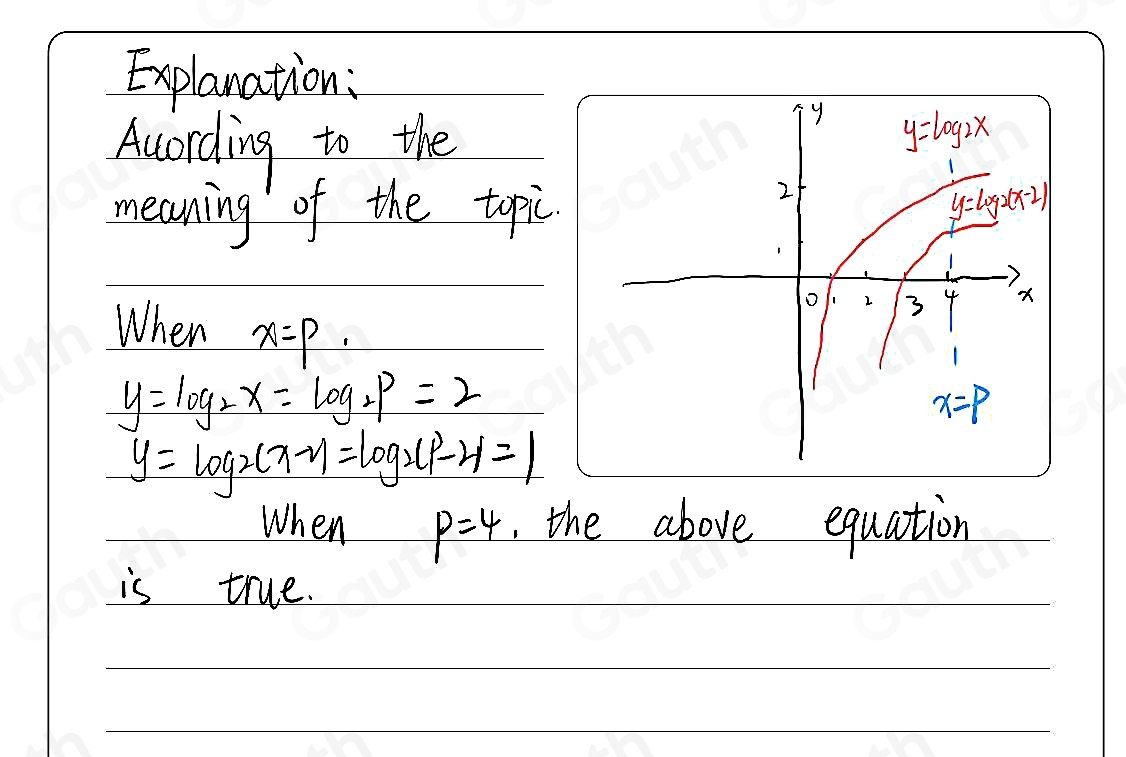 Explanation:
According to the
meaning of the topic.
When x=p.
y=log₂x=log₂p=2
y=log₂(x-2)=log₂(p-2)=1
When p=4, the above equation
is true.
y
y=log₂x
2
y=log₂(x-2)
0 1 2 3 4 x
x=p
Gauth